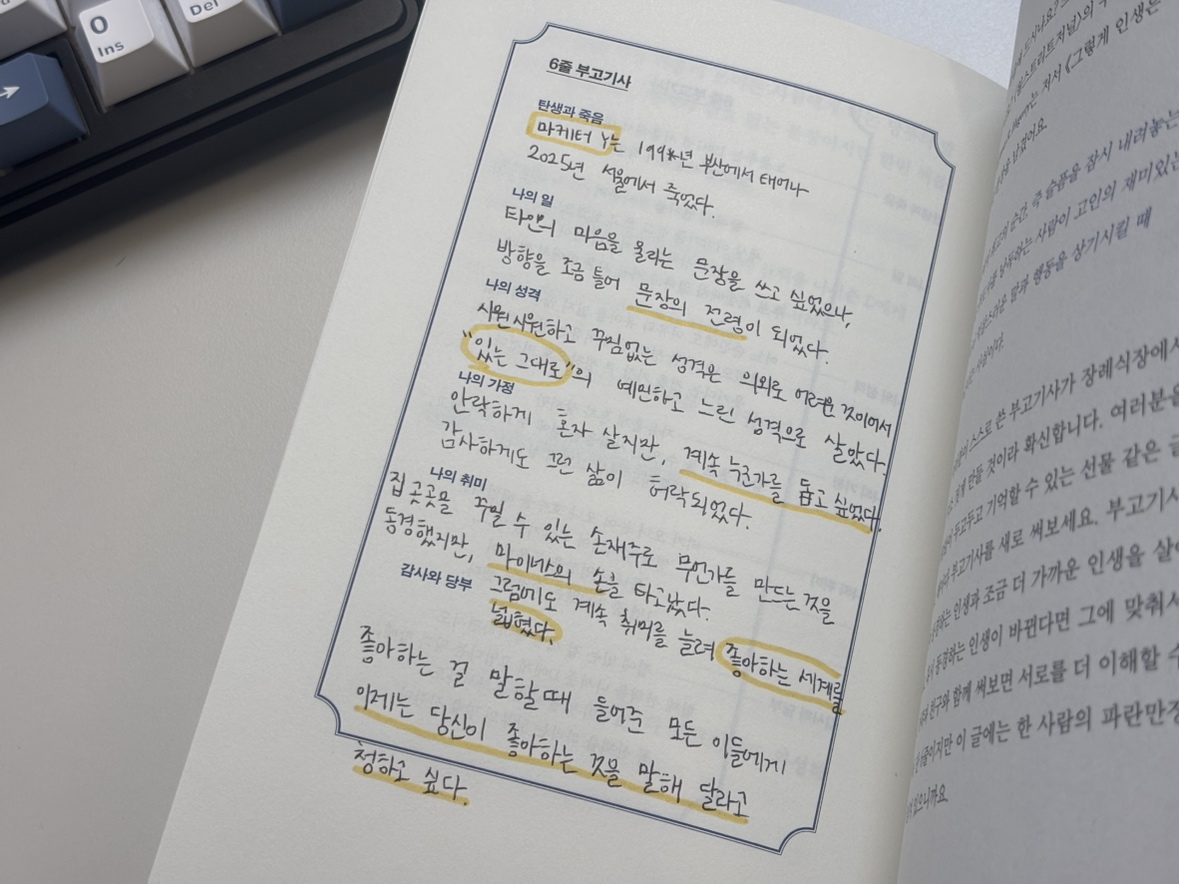 0
Ins
Del
6줄 부고기사
탄생과 죽음
마케터 Y는 199*년 부산에서 태어나
2025년 서울에서 죽었다.
나의 일
타인의 마음을 울리는 문장을 쓰고 싶었으나,
방향을 조금 틀어 문장의 전령이 되었다.
나의 성격
시원시원하고 꾸밈없는 성격은 의외로 어려운 것이어서
"있는 그대로"의 예민하고 느린 성격으로 살았다.
나의 가정
안락하게 혼자 살지만, 계속 누군가를 돕고 싶었다.
감사하게도 그런 삶이 허락되었다.
나의 취미
집 곳곳을 꾸밀 수 있는 손재주로 무언가를 만드는 것을
동경했지만, 마이너스의 손을 타고났다.
그럼에도 계속 취미를 늘려 좋아하는 세계를
넓혔다.
감사와 당부
좋아하는 걸 말할 때 들어준 모든 이들에게
이제는 당신이 좋아하는 것을 말해 달라고
청하고 싶다.
저서 《그렇게 인생은
즉 슬픔을 잠시 내려놓는
사람이 고인의 재미있는
말과 행동을 상기시킬 때
스스로 쓴 부고기사가 장례식장에서
만들 것이라 확신합니다. 여러분을
기억할 수 있는 선물 같은 글
부고기사를 새로 써보세요. 부고기사
인생과 조금 더 가까운 인생을 살아
동경하는 인생이 바뀐다면 그에 맞춰서
친구와 함께 써보면 서로를 더 이해할 수
이 글에는 한 사람의 파란만장
있으니까요.